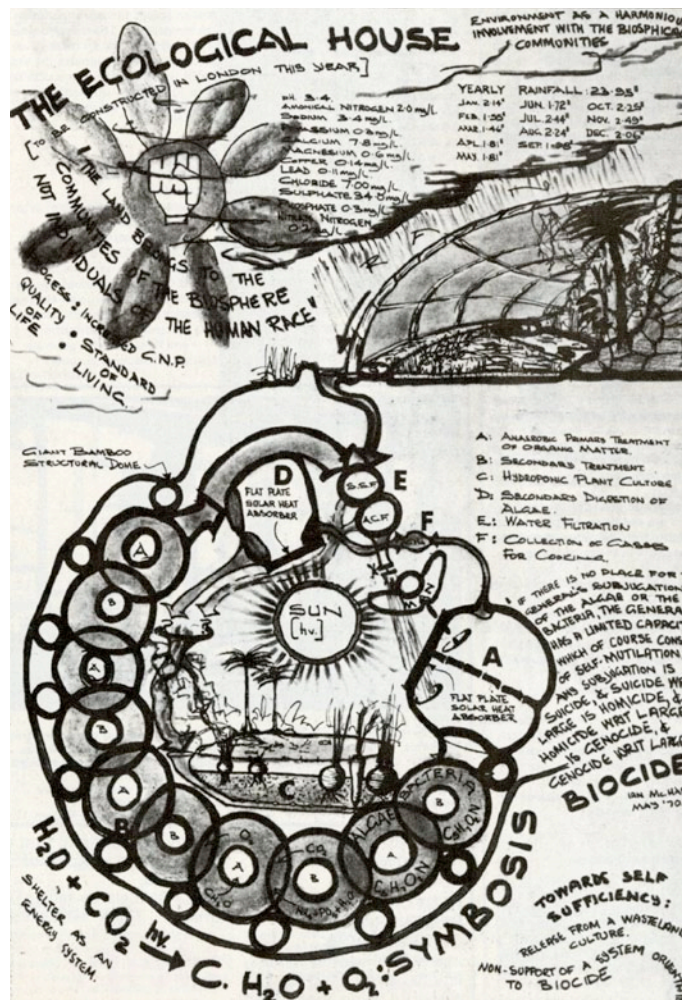 THE ECOLOGICAL HOUSE
[TO BE CONSTRUCTED IN LONDON THIS YEAR]
ENVIRONMENT AS A HARMONIOU
INVOLVEMENT WITH THE BIOSPHICAL
COMMUNITIES
PH 3.4
AMONICAL NITROGEN 2.0 mg/L
SODIUM 3.4 mg/L
POTASSIUM 0.8 mg/L
CALCIUM 7.8 mg/L
MAGNESIUM 0.6 mg/L
COPPER 0.14 mg/L
LEAD 0.11 mg/L
CHLORIDE 7.00 mg/L
SULPHATE 34.0 mg/L
PHOSPHATE 0.3 mg/L
NITRATE NITROGEN
YEARLY RAINFALL: 23.95"
JAN. 2.14" JUN. 1.72" OCT. 2.25"
FEB. 1.55" JUL. 2.44" NOV. 2.49"
MAR. 1.46" AUG. 2.24" DEC. 2.06"
APL. 1.81" SEPT.
MAY. 1.81"
"THE LAND BELONGS TO THE
COMMUNITIES OF THE BIOSPHERE
NOT INDIVIDUALS OF THE HUMAN RACE"
INCREASED G.N.P.
QUALITY : STANDARD
OF OF
LIFE LIVING.
GIANT BAMBOO
STRUCTURAL DOME
A: ANAEROBIC PRIMARY TREATMENT
OF ORGANIC MATTER.
B: SECONDARY TREATMENT.
C: HYDROPONIC PLANT CULTURE
D: SECONDARY DIGESTION OF
ALGAE.
E: WATER FILTRATION
F: COLLECTION OF GASSES
FOR COOKING.
D
FLAT PLATE
SOLAR HEAT
ABSORBER
S.S.F.
A.C.F.
E
F
MAN
SUN
[hv.]
A
FLAT PLATE
SOLAR HEAT
ABSORBER
"IF THERE IS NO PLACE FOR
GENERAL'S SUBJUGATION
OF THE ALGAE OR THE
BACTERIA, THE GENERA
HAS A LIMITED CAPACI
WHICH OF COURSE CONS
OF SELF-MUTILATION.
ANY SUBJUGATION IS
SUICIDE, & SUICIDE WR
LARGE IS HOMICIDE, &
HOMICIDE WRIT LARGE
IS GENOCIDE, &
GENOCIDE WRIT LARGE
BIOCIDE
IAN Mc.HA
MAY '70
A
B
A
B
A
B
B
C
O2
A
CH2O
CO2
B
ALGAE
A
BACTERIA
B
C5H7O2N
H2O + CO2 hv. → C.H2O + O2 : SYMBOSIS
SHELTER AS AN
ENERGY SYSTEM.
TOWARDS SELF
SUFFICIENCY:
RELEASE FROM A WASTELAND
CULTURE.
NON-SUPPORT OF A SYSTEM ORIENT
TO BIOCIDE